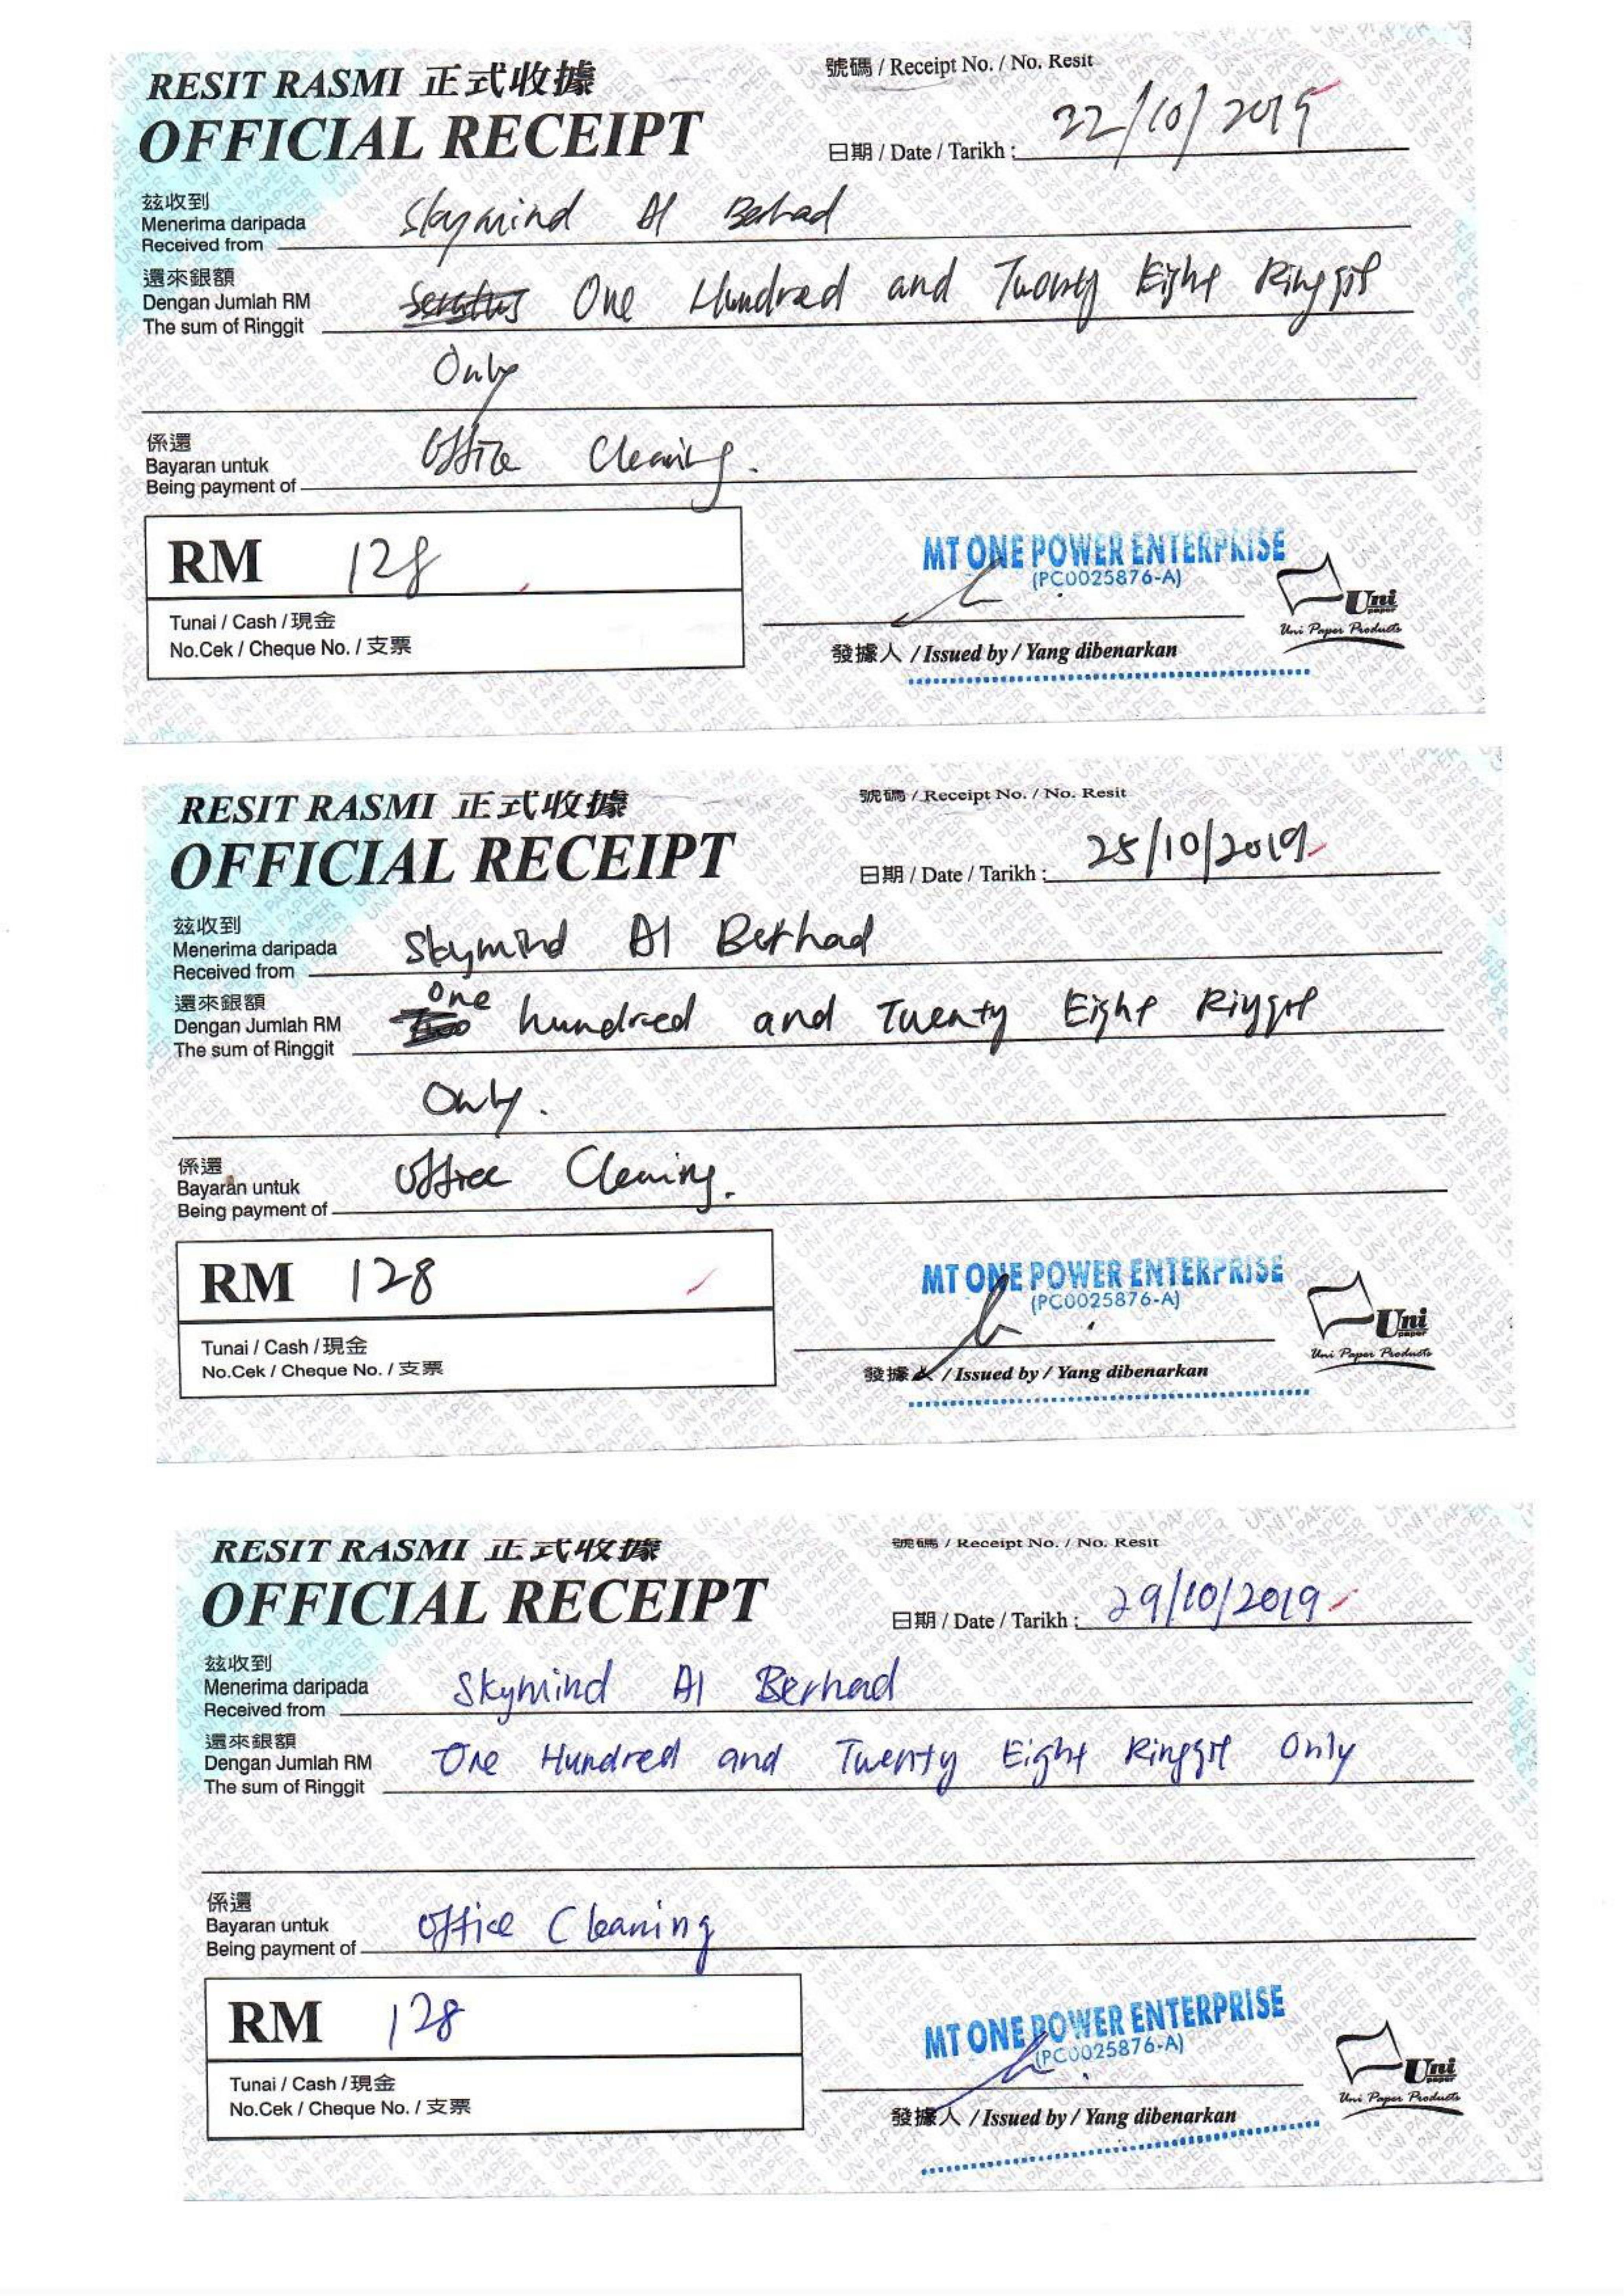 RESIT RASMI 正式收據
OFFICIAL RECEIPT
號碼 / Receipt No. / No. Resit
日期 / Date / Tarikh : 22/10/2019
茲收到
Menerima daripada
Received from Skymind AI Berhad
還來銀額
Dengan Jumlah RM
The sum of Ringgit One Hundred and Twenty Eight Ringgit
Only
係還
Bayaran untuk
Being payment of Office Cleaning.
RM 128
Tunai / Cash / 現金
No.Cek / Cheque No. / 支票
MT ONE POWER ENTERPRISE
(PC0025876-A)
發據人 / Issued by / Yang dibenarkan
Uni
paper
Uni Paper Products
RESIT RASMI 正式收據
OFFICIAL RECEIPT
號碼 / Receipt No. / No. Resit
日期 / Date / Tarikh : 25/10/2019
茲收到
Menerima daripada
Received from Skymind AI Berhad
還來銀額
Dengan Jumlah RM
The sum of Ringgit One hundred and Twenty Eight Ringgit
Only.
係還
Bayaran untuk
Being payment of Office Cleaning.
RM 128
Tunai / Cash / 現金
No.Cek / Cheque No. / 支票
MT ONE POWER ENTERPRISE
(PC0025876-A)
發據人 / Issued by / Yang dibenarkan
Uni
paper
Uni Paper Products
RESIT RASMI 正式收據
OFFICIAL RECEIPT
號碼 / Receipt No. / No. Resit
日期 / Date / Tarikh : 29/10/2019
茲收到
Menerima daripada
Received from Skymind AI Berhad
還來銀額
Dengan Jumlah RM
The sum of Ringgit One Hundred and Twenty Eight Ringgit Only
係還
Bayaran untuk
Being payment of Office Cleaning
RM 128
Tunai / Cash / 現金
No.Cek / Cheque No. / 支票
MT ONE POWER ENTERPRISE
(PC0025876-A)
發據人 / Issued by / Yang dibenarkan
Uni
paper
Uni Paper Products